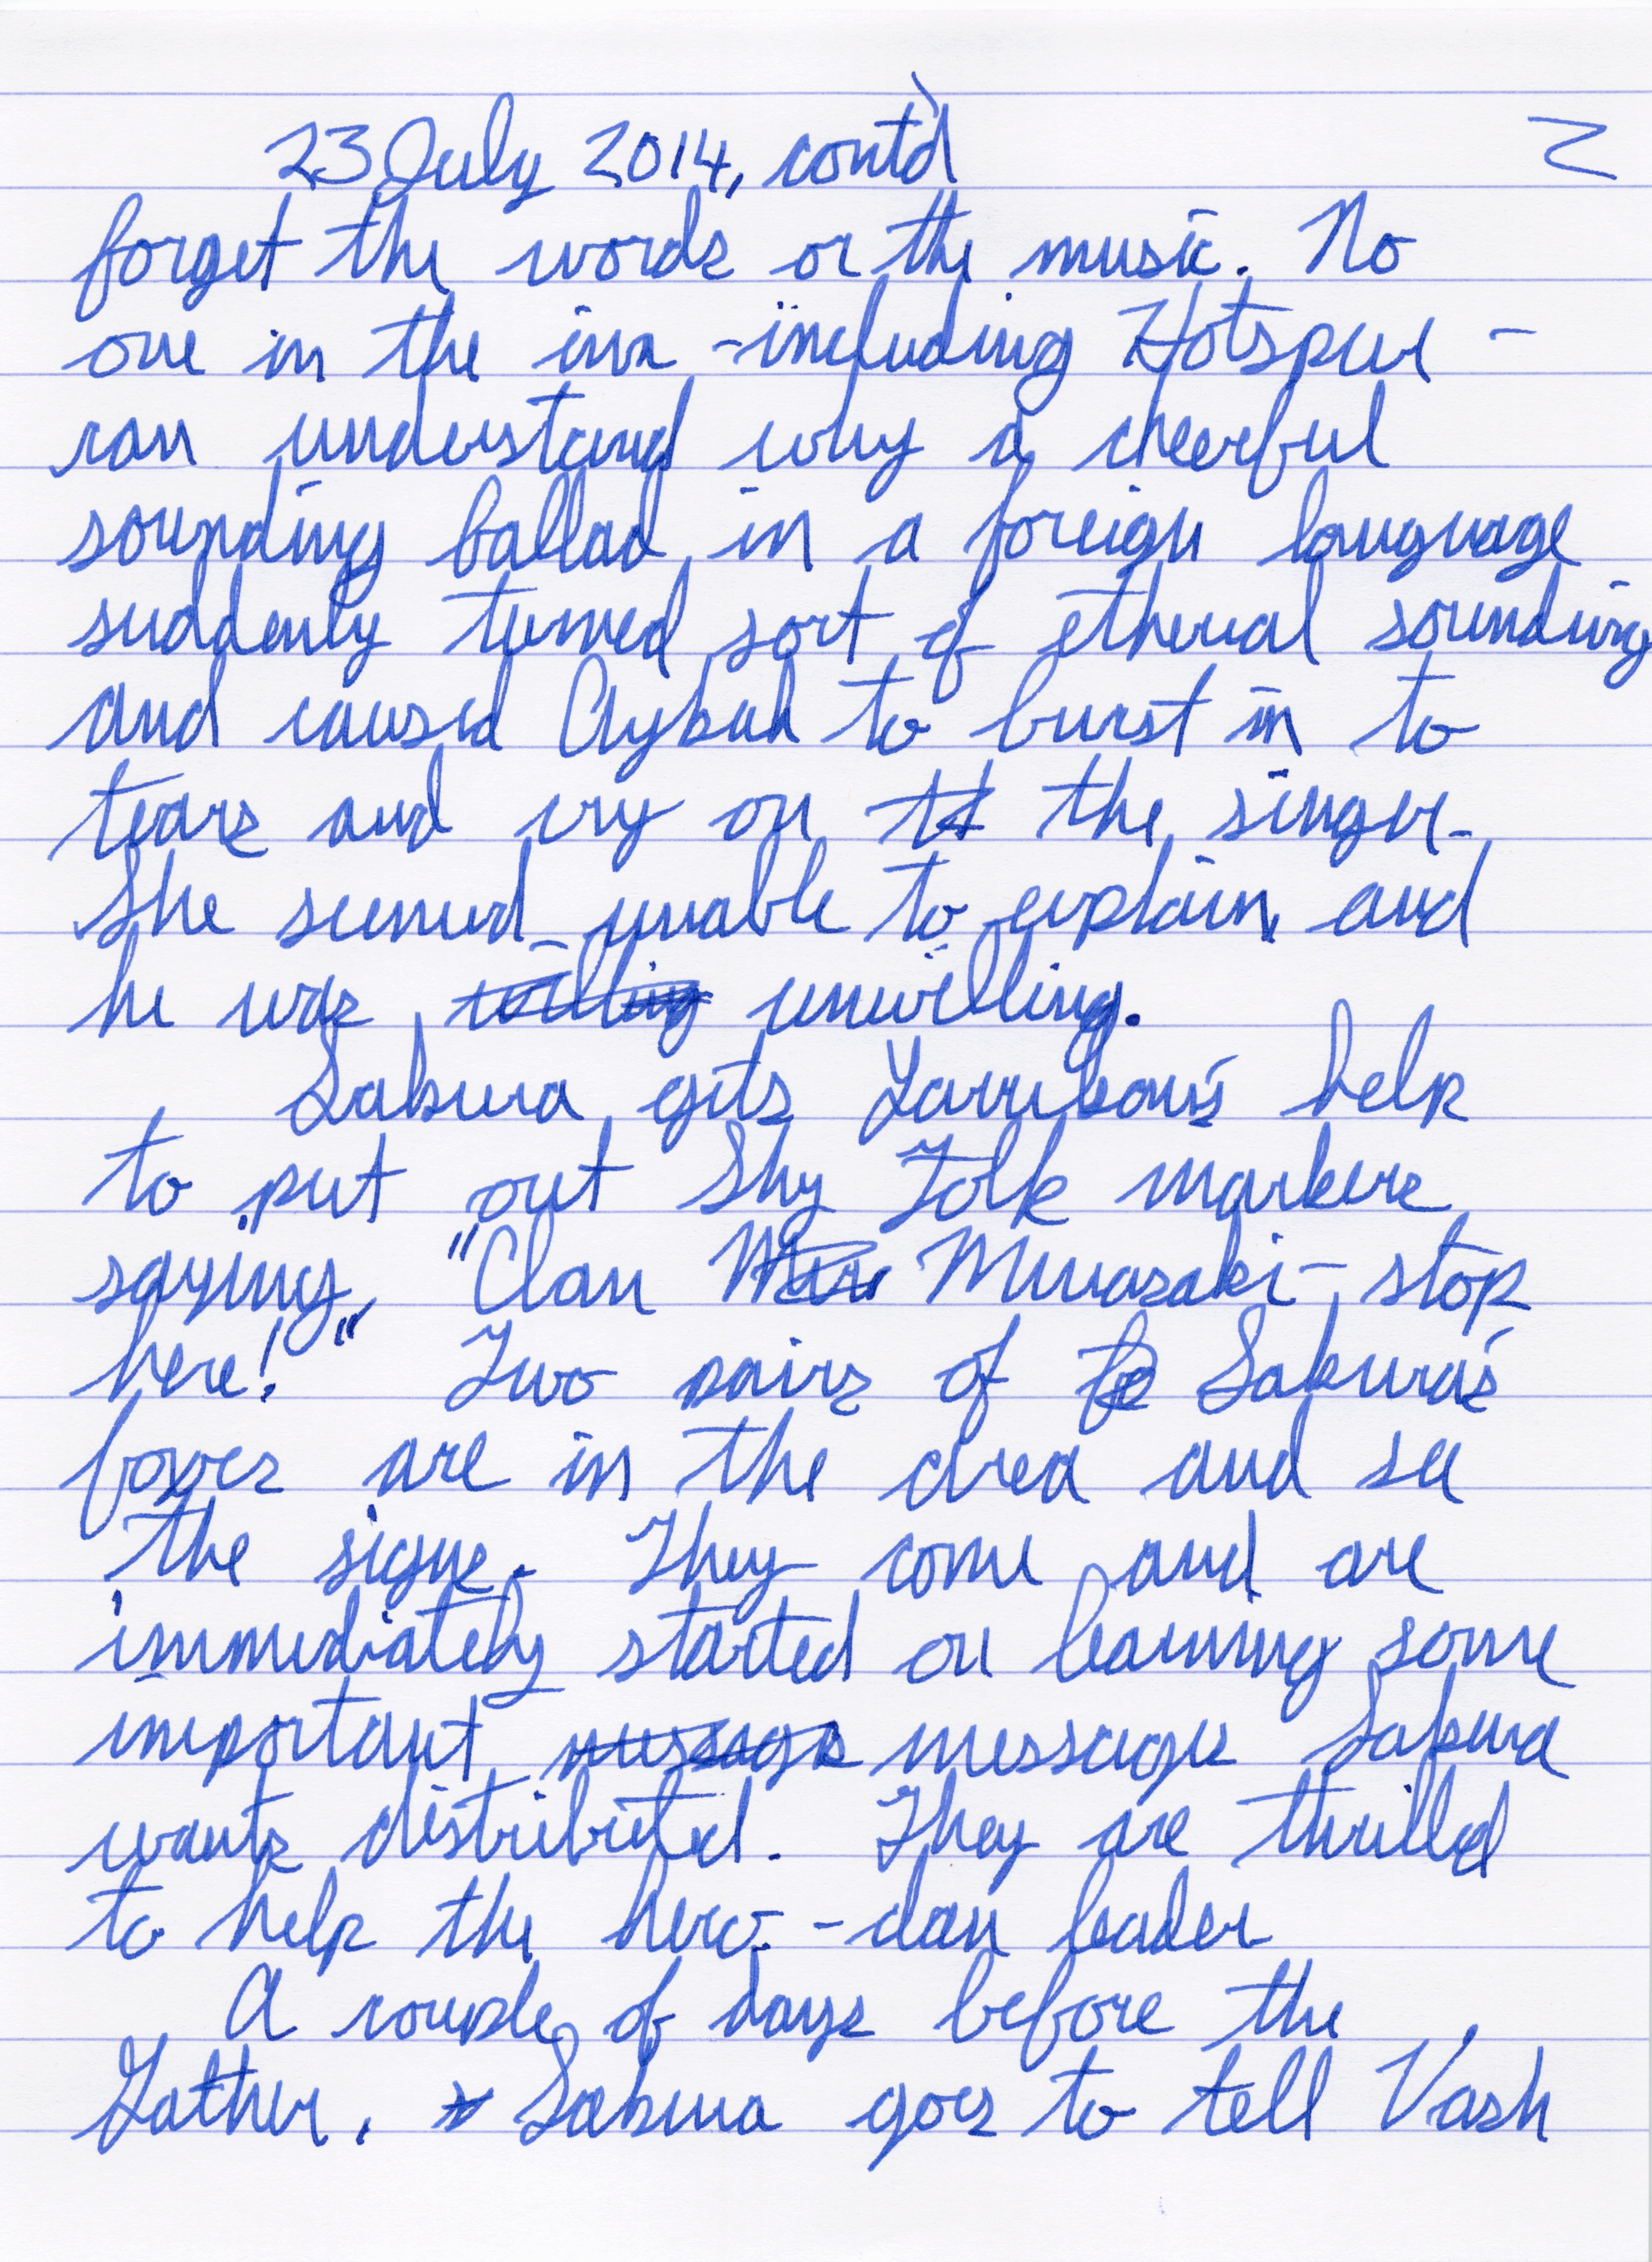 23 July 2014, cont'd 2
forget the words or the music. No
one in the inn - including Hotspur -
can understand why a cheerful
sounding ballad in a foreign language
suddenly turned sort of etherial sounding
and caused Clybah to burst in to
tears and cry on the singer.
She seemed unable to explain, and
he was willing unwilling.
Sakura gets Yarrubou's help
to put out Shy Folk markers
saying, "Clan Murasaki - stop
here!" Two pairs of Sakura's
foxes are in the area and see
the signs. They come and are
immediately started on learning some
important message messages Sakura
wants distributed. They are thrilled
to help the hero - clan leader
A couple of days before the
Gather, Sakura goes to tell Vash